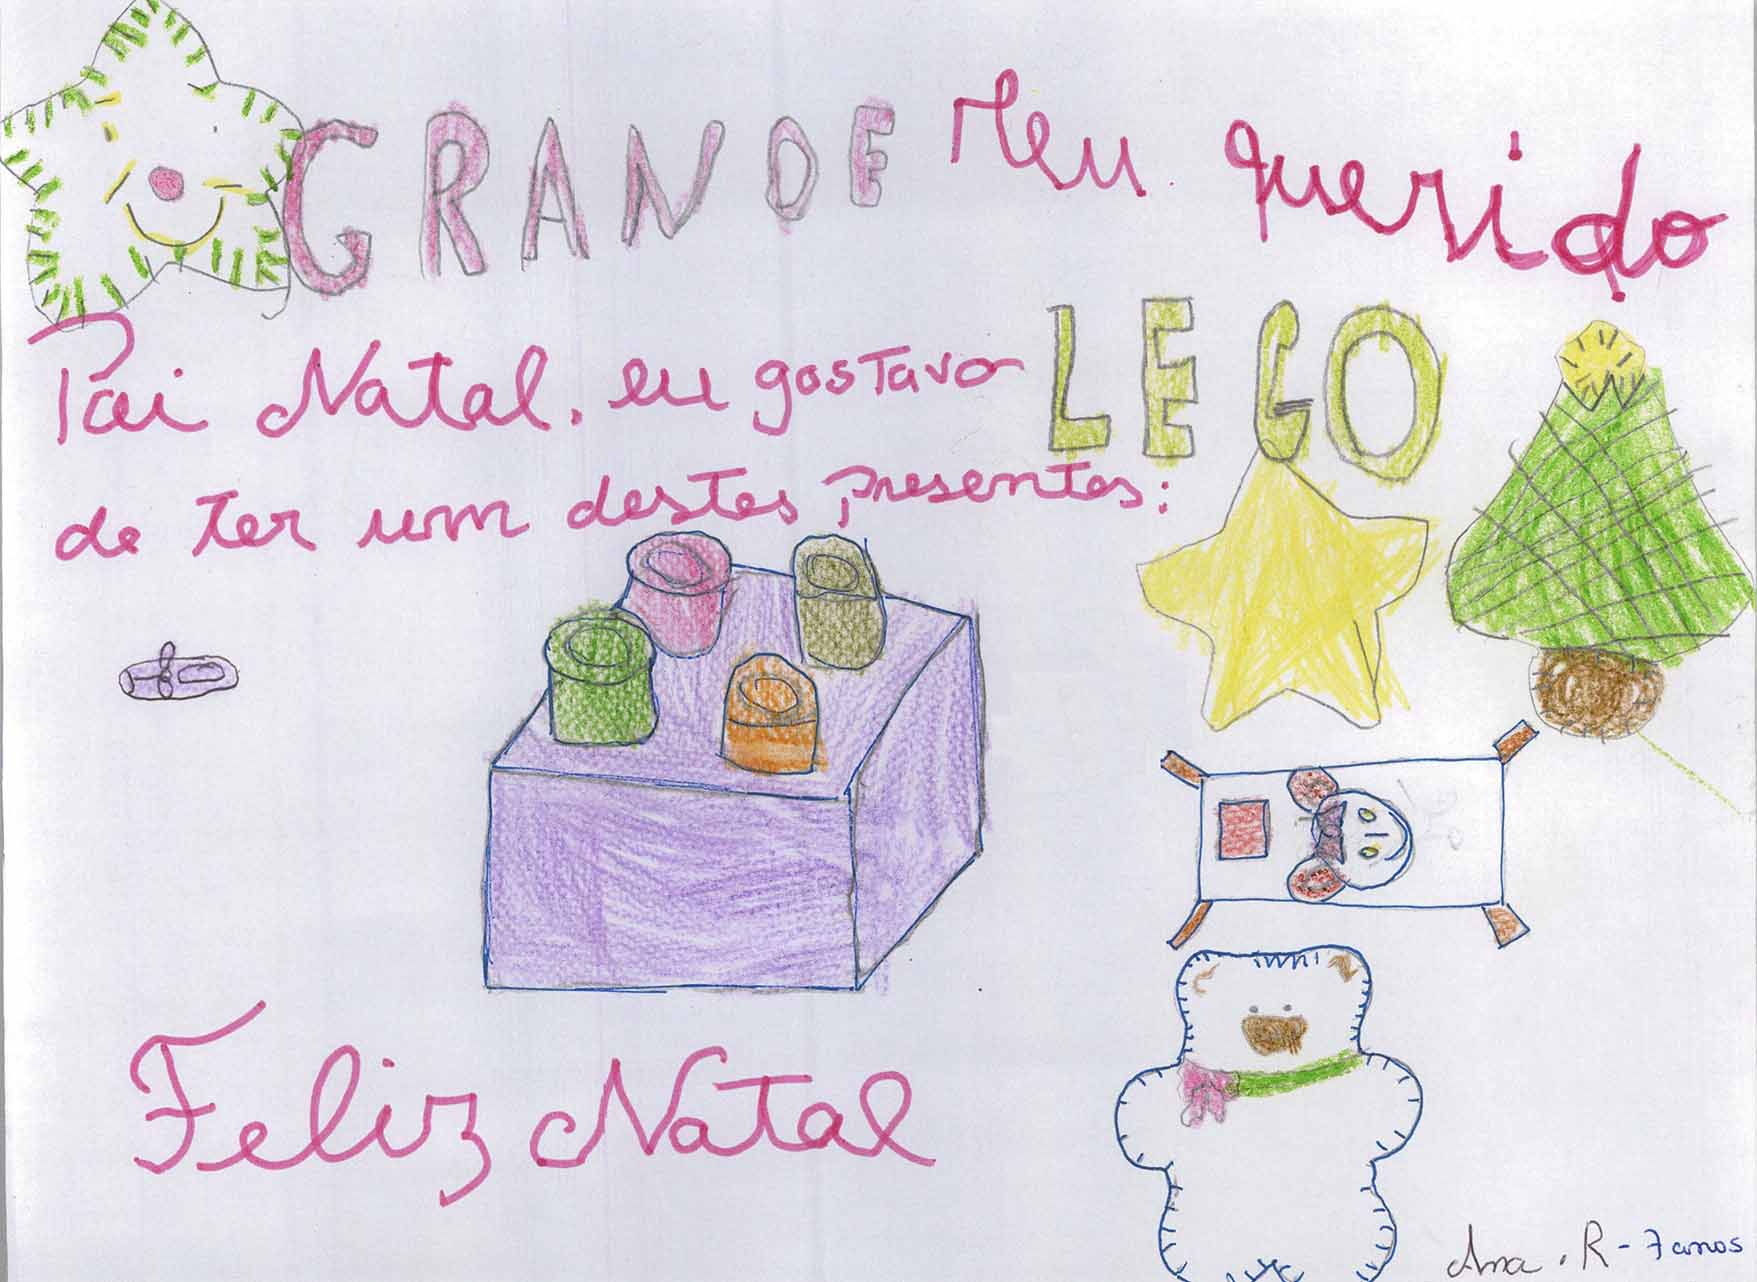 GRANDE Meu querido
Pai Natal, eu gostava LEGO
de ter um destes presentes:
Feliz Natal
Ana . R - 7 anos